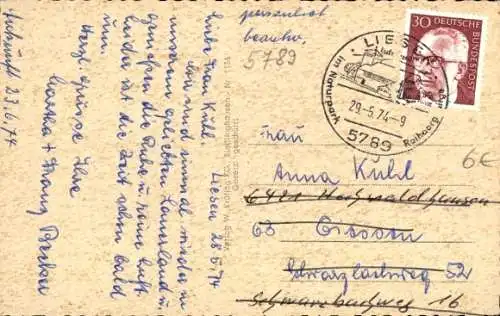 persönlich
beantw.
5789
Liesen 28.5.74
Liebe Frau Kühl.
Nun sind wir mal wieder in
unserem geliebten Sauerland u.
genießen die Ruhe u. reine Luft.
leider ist die Zeit schon bald
um.
Herzl. Grüsse Ihre
Martha + Franz Becker
Ankunft 23.6.74
Verlag W.
Nr. 134
Gesetzl. geschützt
LIESEN
im Naturpark
29.-5.74-9
5789
Rothaarg
30 DEUTSCHE
BUNDESPOST
6€
Frau
Anna Kühl
63 Giessen
Schwarzlachweg 52
Schwarzlachweg 16